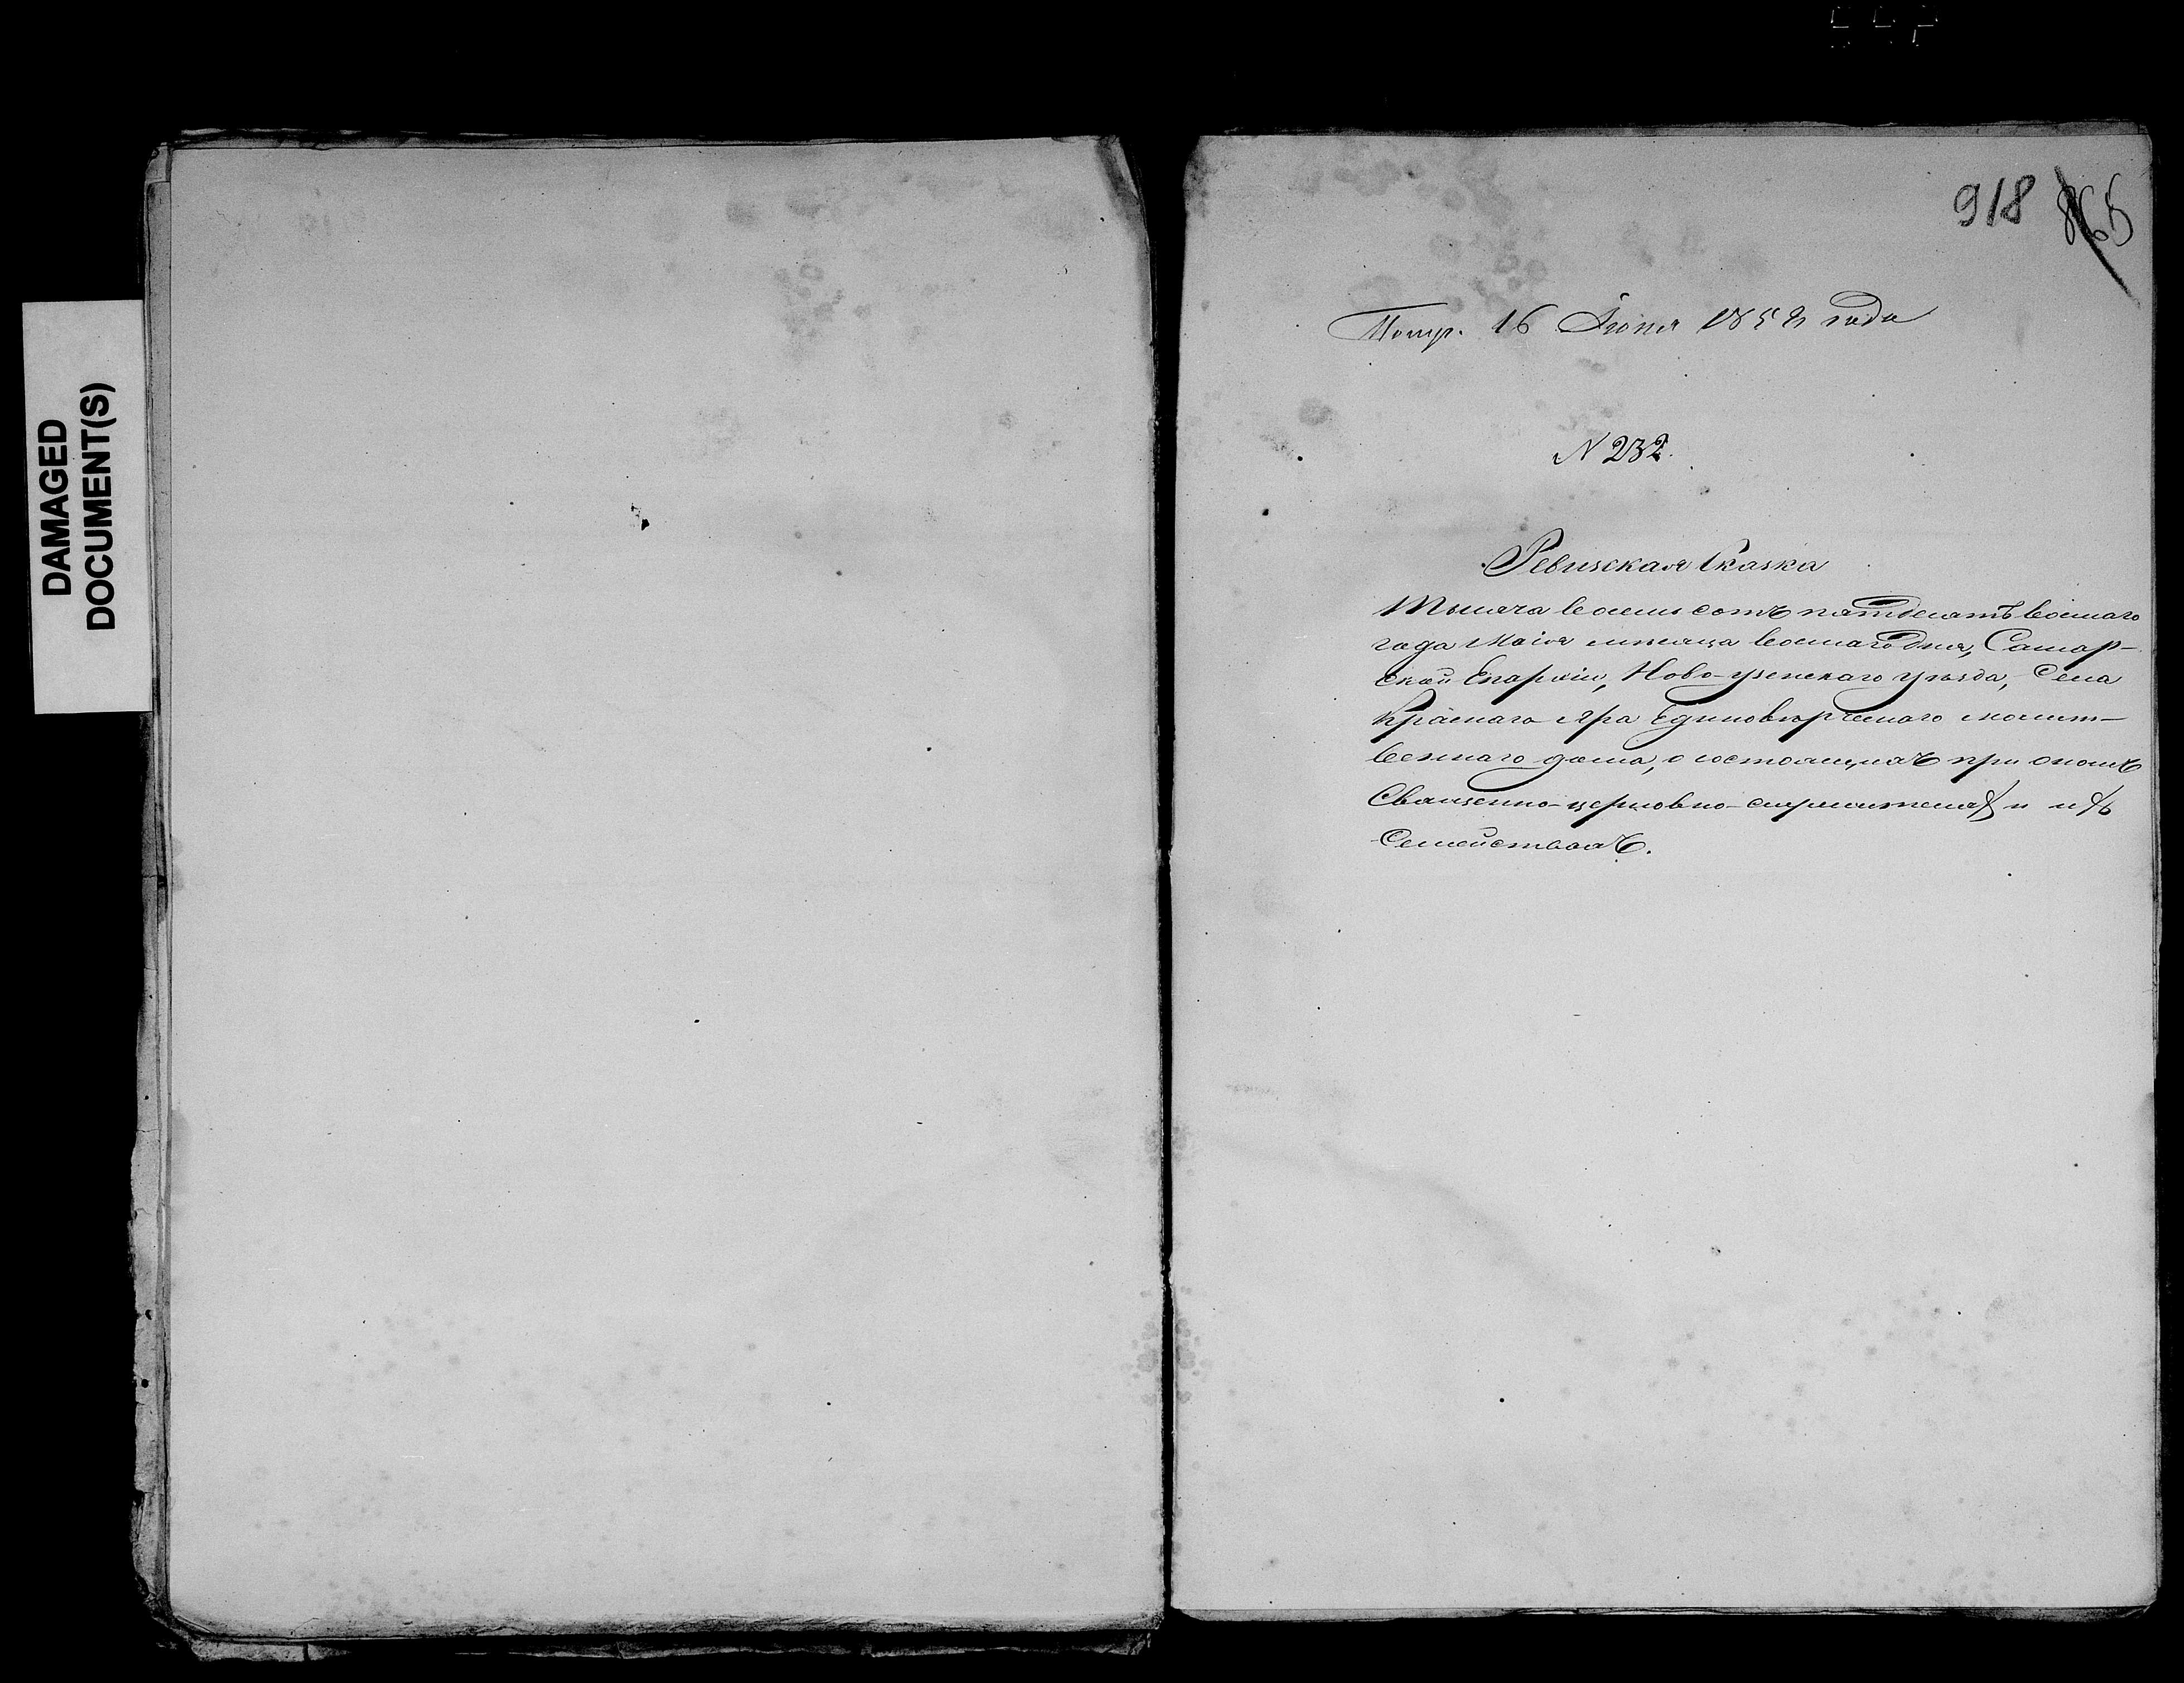 DAMAGED
DOCUMENT(S)
918 865
16 Іюня 1858 года
N 232.
Ревизская Сказка
Тысяча восемь сотъ пятдесятъ восьмаго
года Маія мѣсяца восьмаго дня, Самар-
ской Епархіи, Ново-узенскаго уѣзда, Села
Краснаго Яра Единовѣрческаго молит-
веннаго дома, о состоящихъ при ономъ
Священно-церковно-служителяхъ и ихъ
Семействахъ.